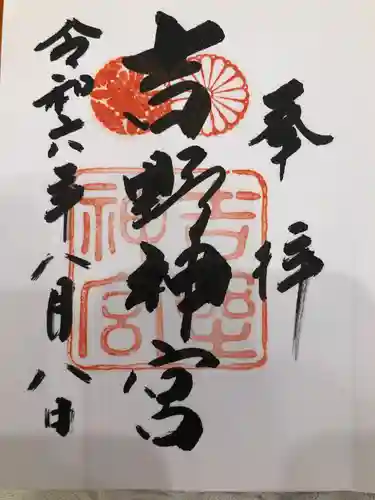 奉拝
吉野神宮
吉野神宮
令和六年八月八日